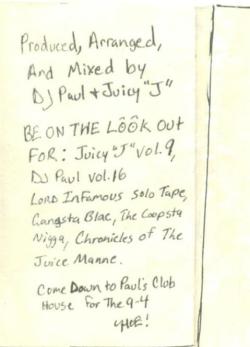 Produced, Arranged,
And Mixed by
DJ Paul + Juicy "J"
BE ON THE LÔÔK OUt
FOR: Juicy "J" Vol. 9,
DJ Paul vol. 16
LORD INFamous Solo Tape,
Gangsta Blac, The Coopsta
Nigga, Chronicles of The
Juice Manne.
Come Down to Paul's Club
House For The 9-4